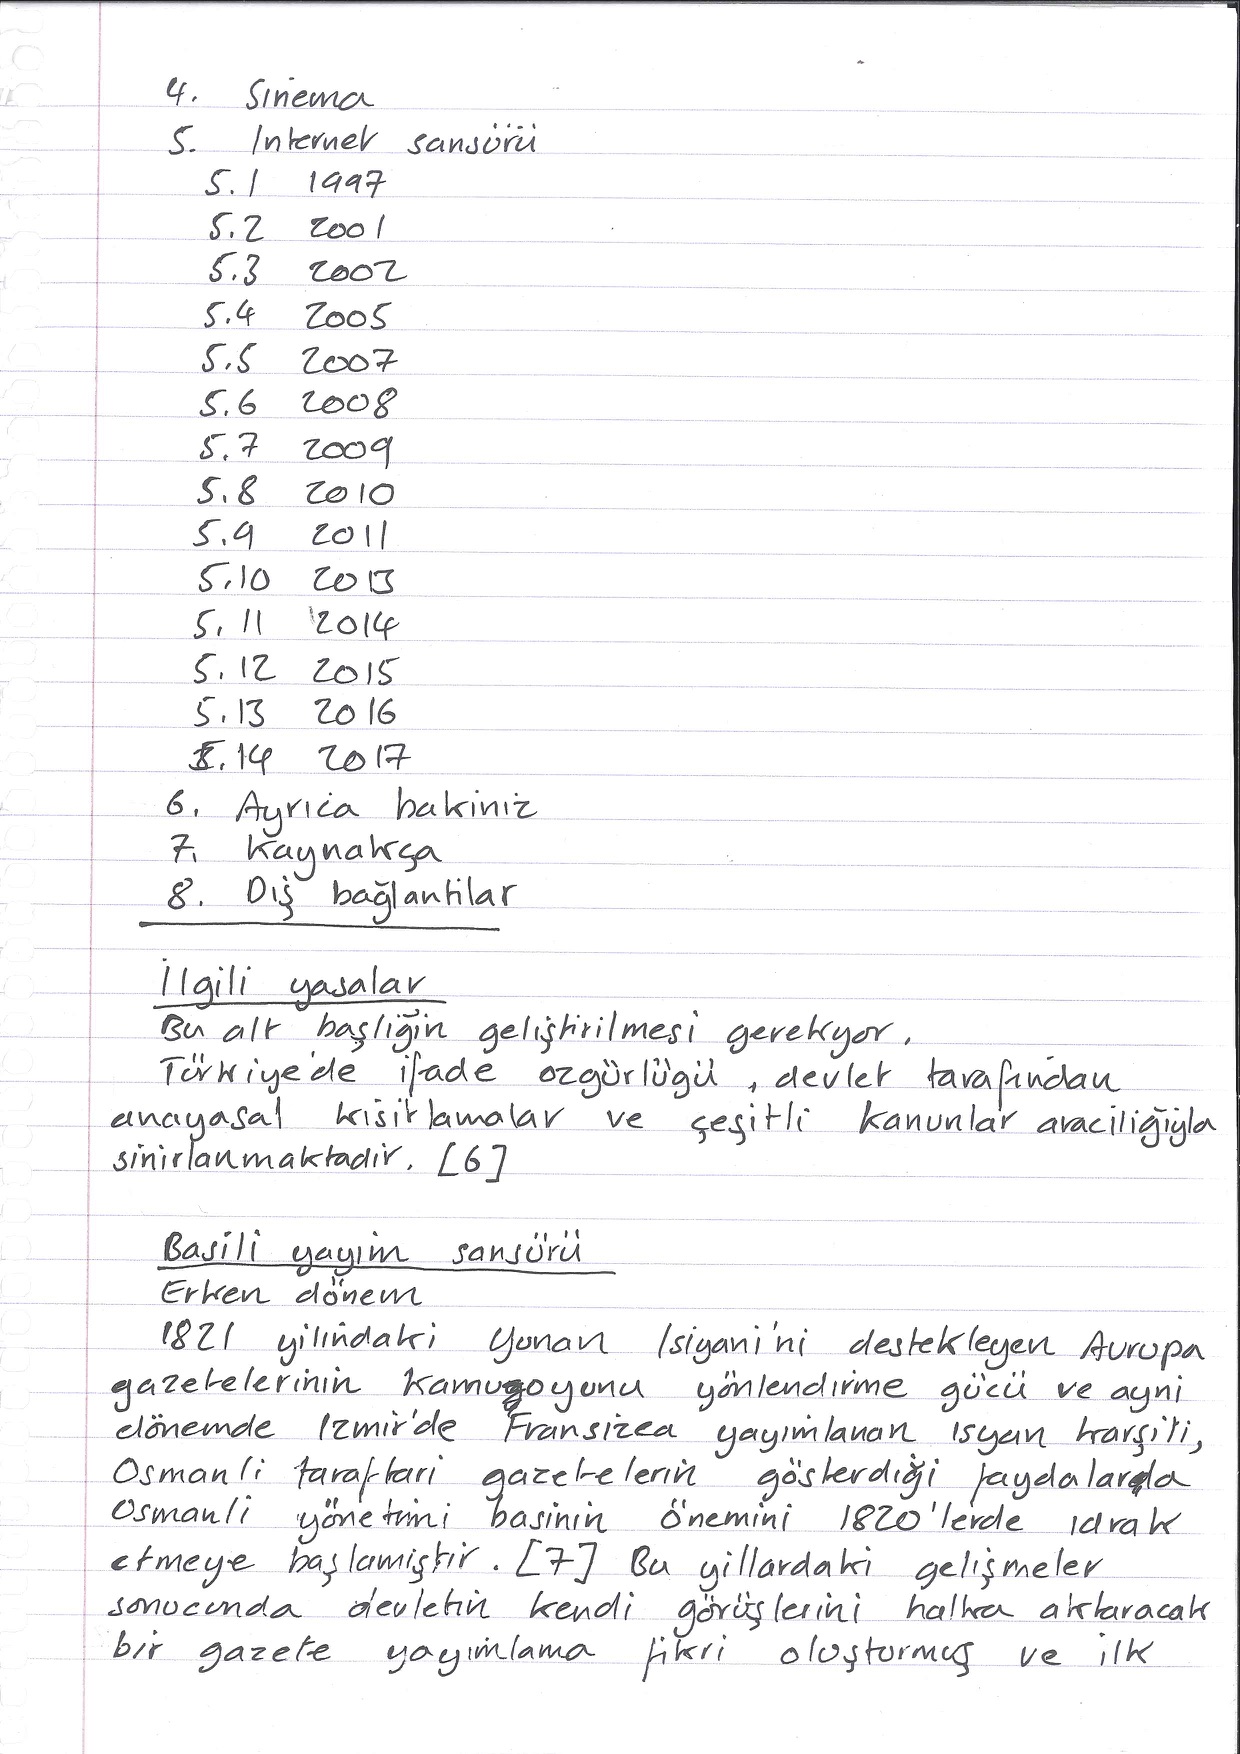 4. Sinema
5. Internet sansürü
5.1 1997
5.2 2001
5.3 2002
5.4 2005
5.5 2007
5.6 2008
5.7 2009
5.8 2010
5.9 2011
5.10 2013
5.11 2014
5.12 2015
5.13 2016
5.14 2017
6. Ayrica bakiniz
7. Kaynakça
8. Diş bağlantilar
İlgili yasalar
Bu alt başliğin geliştirilmesi gerekyor.
Türkiye'de ifade özgürlügü, devlet tarafindan
anayasal kisitlamalar ve çeşitli kanunlar araciliğiyla
sinirlanmaktadir. [6]
Basili yayim sansürü
Erken dönem
1821 yilindaki Yunan Isiyani'ni destekleyen Avrupa
gazetelerinin kamuoyunu yönlendirme gücü ve ayni
dönemde Izmir'de Fransizca yayimlanan isyan karşiti,
Osmanli taraftari gazetelerin gösterdiği faydalarla
Osmanli yönetimi basinin önemini 1820'lerde idrak
etmeye başlamiştir. [7] Bu yillardaki gelişmeler
sonucunda devletin kendi görüşlerini halka aktaracak
bir gazete yayimlama fikri oluşturmuş ve ilk